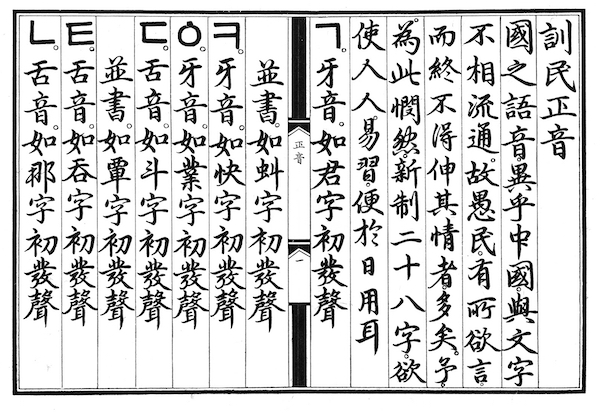 訓民正音
國之語音。異乎中國。與文字
不相流通。故愚民。有所欲言。
而終不得伸其情者。多矣。予。
為此憫然。新制二十八字。欲
使人人。易習。便於日用耳
ㄱ。牙音。如君字初發聲
正音
一
並書。如虯字初發聲
ㅋ。牙音。如快字初發聲
ㆁ。牙音。如業字初發聲
ㄷ。舌音。如斗字初發聲
並書。如覃字初發聲
ㅌ。舌音。如呑字初發聲
ㄴ。舌音。如那字初發聲